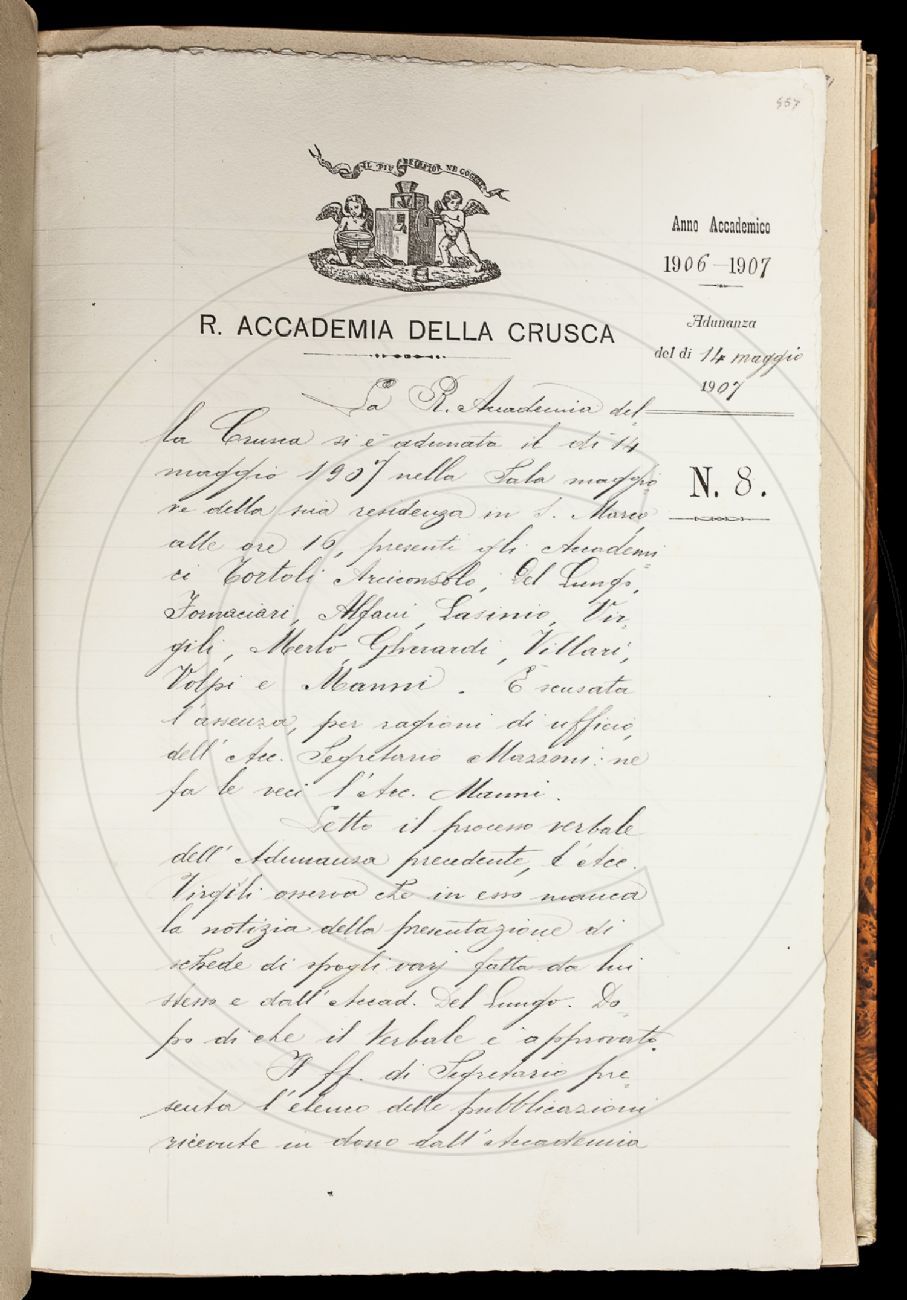 557
IL PIÙ BEL FIOR NE COGLIE
Anno Accademico
1906-1907
R. ACCADEMIA DELLA CRUSCA
Adunanza
del dì 14 maggio
1907
N. 8.
La R. Accademia del-
la Crusca si è adunata il dì 14
maggio 1907 nella Sala maggio-
re della sua residenza in S. Marco
alle ore 16, presenti gli Accademi-
ci Tortoli Arciconsolo, Del Lungo,
Fornaciari, Alfani, Lasinio, Vir-
gili, Merlo, Gherardi, Villari,
Volpi e Manni. È scusata
l'assenza, per ragioni di ufficio,
dell'Acc. Segretario Mazzoni: ne
fa le veci l'Acc. Manni.
Letto il processo verbale
dell'Adunanza precedente, l'Acc.
Virgili osserva che in esso manca
la notizia della presentazione di
schede di spogli varj fatta da lui
stesso e dall'Accad. Del Lungo. Do-
po di che il Verbale è approvato.
Il ff. di Segretario pre-
senta l'elenco delle pubblicazioni
ricevute in dono dall'Accademia